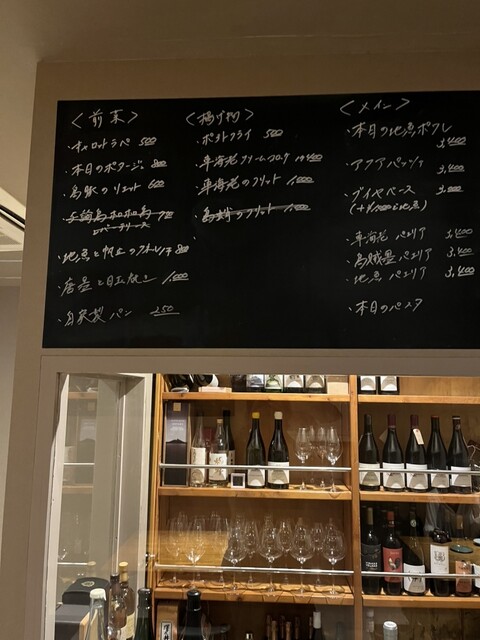 〈前菜〉
・キャロットラペ 500
・本日のポタージュ 800
・鳥豚のリエット 600
・地魚と帆立のタルタル 800
・自家製 パン 250
〈揚げ物〉
・ポテトフライ 500
・車海老クリームコロッケ
・車海老のフリット 1,000
・烏賊のフリット 1,000
〈メイン〉
・本日の地魚ポワレ
3,400
・アクアパッツァ 3,400
・ブイヤベース 3,000
・車海老 パエリア 3,400
・烏賊墨 パエリア 3,400
・地魚 パエリア 3,400
・本日のパスタ